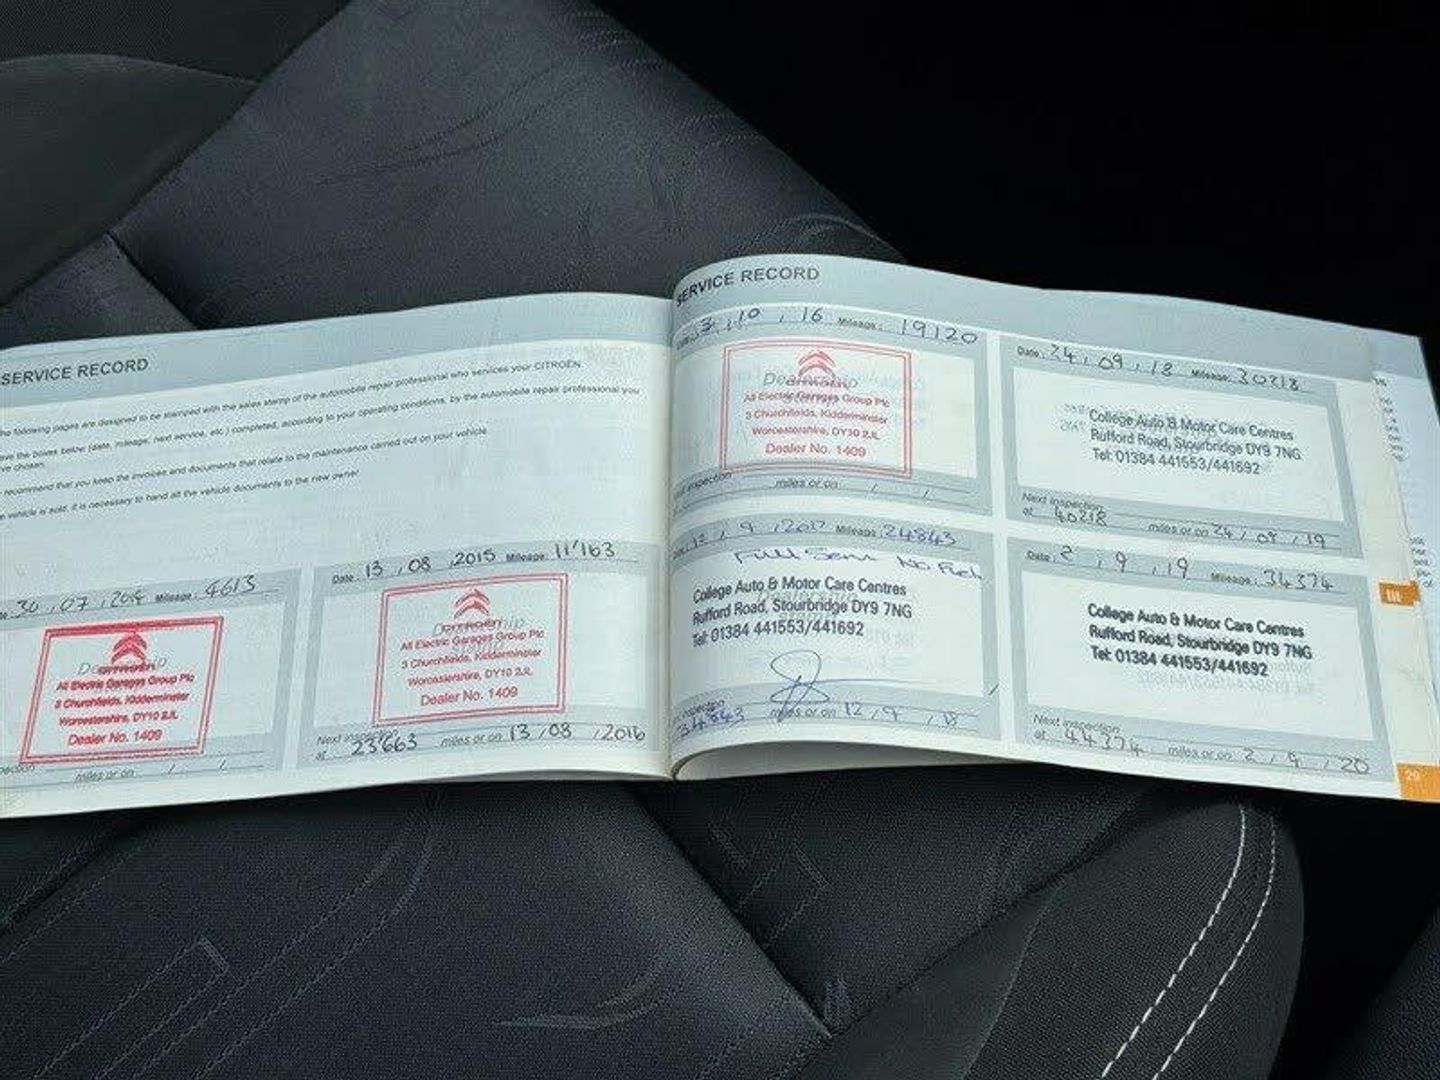 SERVICE RECORD
following pages are designed to be stamped with the sales stamp of the automobile repair professional who services your CITROËN.
the boxes below (date, mileage, next service, etc.) completed, according to your operating conditions, by the automobile repair professional you
chosen.
recommend that you keep the invoices and documents that relate to the maintenance carried out on your vehicle
vehicle is sold, it is necessary to hand all the vehicle documents to the new owner
30, 07, Mileage: 4613
CITROËN
All Electric Garages Group Plc
3 Churchfields, Kidderminster
Worcestershire, DY10 2JL
Dealer No. 1409
miles or on / /
Date: 13, 08, 2015 Mileage: 11'163
Dealership stamp
All Electric Garages Group Plc
3 Churchfields, Kidderminster
Worcestershire, DY10 2JL
Dealer No. 1409
Next inspection
at 23663 miles or on 13/08/2016
SERVICE RECORD
3, 10, 16 Mileage: 19120
Dealership
All Electric Garages Group Plc
3 Churchfields, Kidderminster
Worcestershire, DY10 2JL
Dealer No. 1409
inspection miles or on / /
12, 9, 2017 Mileage: 24843
Full Serv No Fuel
College Auto & Motor Care Centres
Rufford Road, Stourbridge DY9 7NG
Tel: 01384 441553/441692
inspection
34843 miles or on 12, 9, 18
Date: 24, 09, 18 Mileage: 30218
College Auto & Motor Care Centres
Rufford Road, Stourbridge DY9 7NG
Tel: 01384 441553/441692
Next inspection
at 40218 miles or on 24/09/19
Date: 2, 9, 19 Mileage: 34374
College Auto & Motor Care Centres
Rufford Road, Stourbridge DY9 7NG
Tel: 01384 441553/441692
Next inspection
at 44374 miles or on 2, 9, 20
III
29